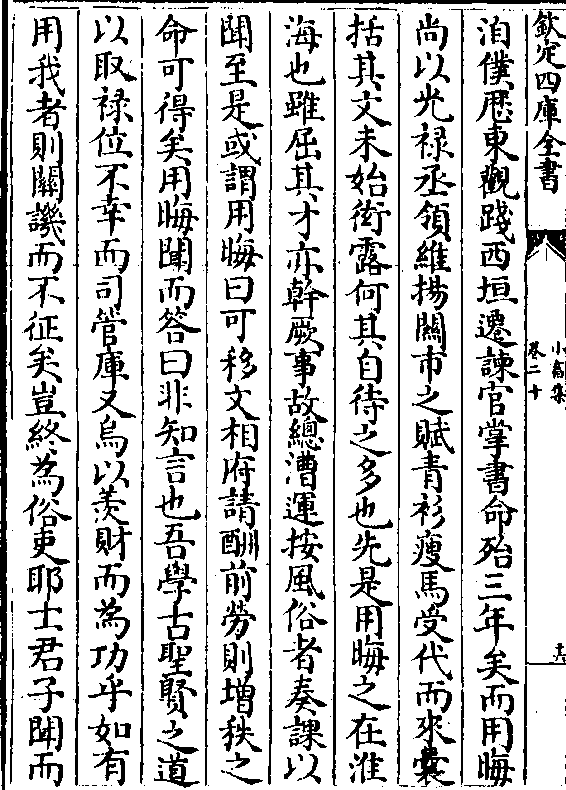 欽定四庫全書
小畜集
卷二十
十六
洎僕歴東觀踐西垣遷諫官掌書命殆三年矣而用晦
尚以光禄丞領維揚關市之賦青衫瘦馬受代而來橐
括其文未始衒露何其自待之多也先是用晦之在淮
海也雖屈其才亦幹厥事故總漕運按風俗者奏課以
聞至是或謂用晦曰可移文相府請酬前勞則增秩之
命可得矣用晦聞而答曰非知言也吾學古聖賢之道
以取禄位不幸而司管庫又烏以羨財而為功乎如有
用我者則關譏而不征矣豈終為俗吏耶士君子聞而